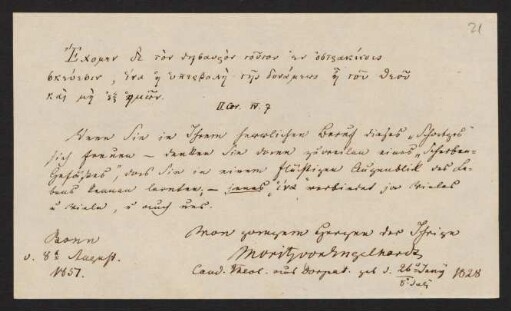 21
Ἔχομεν δὲ τὸν θησαυρὸν τοῦτον ἐν ὀστρακίνοις
σκεύεσιν, ἵνα ἡ ὑπερβολὴ τῆς δυνάμεως ᾖ τοῦ θεοῦ
καὶ μὴ ἐξ ἡμῶν.
II Cor. IV. 7
Wenn Sie in Ihrem herrlichen Beruf dieses „Schatzes"
sich freuen – denken Sie daran zuweilen eines „Scherben-
Gefäßes", das Sie in einem flüchtigen Augenblick des Le-
bens kennen lernten; – jenes verbindet ja Vieles
u Viele, u auch uns.
Von ganzem Herzen der Ihrige
Bonn
Moritz von Engelhardt
d. 8t August.
Cand. Theol. aus Dorpat. geb d. 26 Juny 1828
1857.
8 July